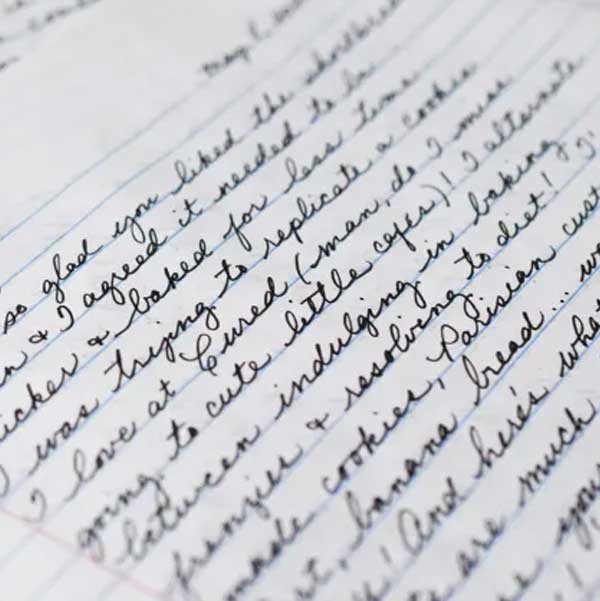 so glad you liked the
& I agreed it needed to be
& baked for less time
I was trying to replicate a cookie
I love at Cured (man, do I miss
going to cute little cafes)! I alternate
between indulging in baking
frenzies & resolving to diet!
made cookies, Parisian
banana bread...
! And here's what
are much